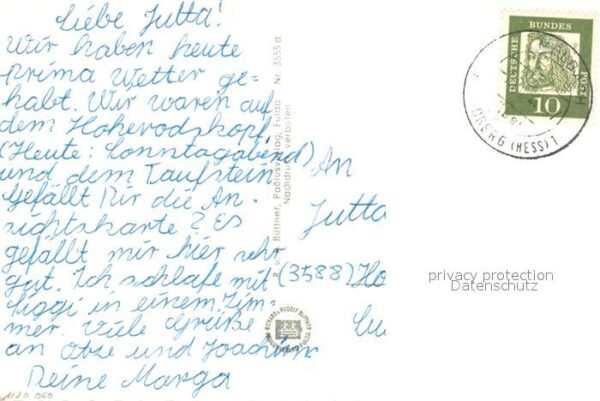 Liebe Jutta!
Wir haben heute
prima Wetter ge-
habt. Wir waren auf
dem Hoherodskopf
(Heute: Sonntagabend)
und dem Taufstein
Gefällt Dir die An-
sichtskarte? Es
gefällt mir hier sehr
gut. Ich schlafe mit
Siggi in einem Zim-
mer. Viele Grüße
an und Joachim
Deine Marga
An
Jutta
(3588) Ho
Nr. 3555 d
Büttner, Verlag, Fulda
Nachdruck verboten
DEUTSCHE
BUNDES
POST
10
BERG (HESS) 1
privacy protection
Datenschutz